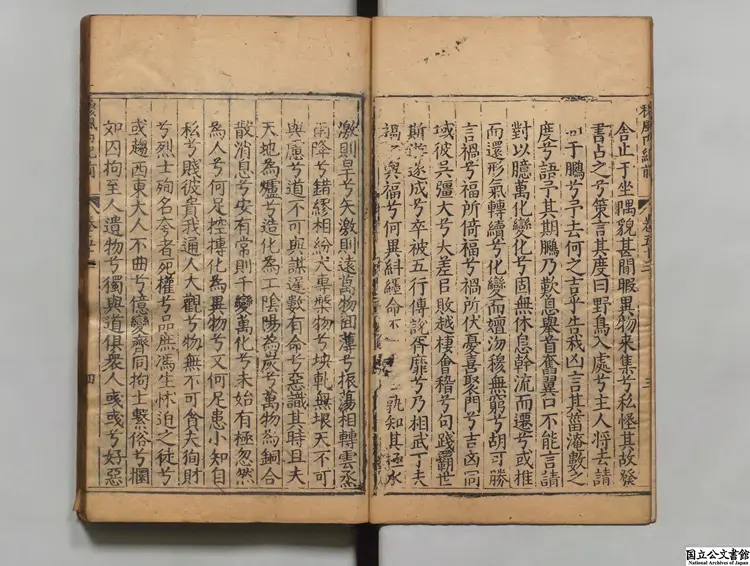 舎止于坐隅貌甚閒暇異物来集兮私怪其故發
書占之兮策言其度曰野鳥入處兮主人将去請
于鵬兮予去何之吉乎告我凶言其菑淹數之
度兮語予其期鵬乃歎息舉首奮翼口不能言請
對以臆萬化變化兮固無休息幹流而遷兮或推
而還形氣轉續兮化變而嬗沕穆無窮兮胡可勝
言禍兮福所倚福兮禍所伏憂喜聚門兮吉凶同
域彼吳彊大兮夫差㠯敗越棲會稽兮句踐霸世
斯遂成兮卒被五行傳說胥靡兮乃相武丁夫
禍之與福兮何異糾纆命不孰知其極水
三
激則旱兮矢激則遠萬物回薄兮振蕩相轉雲烝
雨降兮錯繆相紛大専槃物兮坱軋無垠天不可
與慮兮道不可與謀遅數有命兮惡識其時且夫
天地為爐兮造化為工陰陽為炭兮萬物為銅合
散消息兮安有常則千變萬化兮未始有極忽然
為人兮何足控摶化為異物兮又何足患小知自
私兮賤彼貴我通人大觀兮物無不可貪夫狥財
兮烈士殉名夸者死權兮品庶馮生怵迫之徒兮
或趨西東大人不曲兮億變齊同拘士繫俗兮㩜
如囚拘至人遺物兮獨與道俱衆人惑惑兮好惡
四
国立公文書館
National Archives of Japan